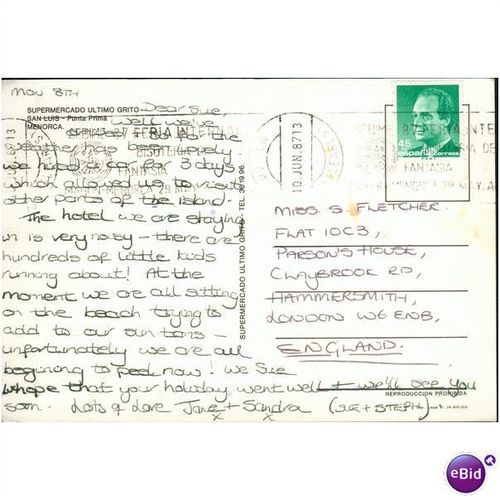 MON 8TH
SUPERMERCADO ULTIMO GRITO
SAN LUIS - Punta Prima
MENORCA.
Dear Sue,
Well we've
so far the
weather has been lovely
we hired a car for 3 days
which allowed us to visit
other parts of the island.
The hotel we are staying
in is very noisy - there are
hundreds of little kids
running about! At the
moment we are all sitting
on the beach trying to
add to our sun tans -
unfortunately we are all
beginning to peel now! We
hope that your holiday went well + we'll see you
soon. Lots of Love Jane + Sandra (SUE + STEPH)
x x
SUPERMERCADO ULTIMO GRITO - TEL. 36 19 96
10 JUN. 87 13
FERIA INTE
FANTASIA
45
españa correos
MISS. S. FLETCHER.
FLAT 10C3,
PARSON'S HOUSE,
CLAYBROOK RD,
HAMMERSMITH,
LONDON W6 8NB,
ENGLAND.
REPRODUCCION PROHIBIDA
eBid